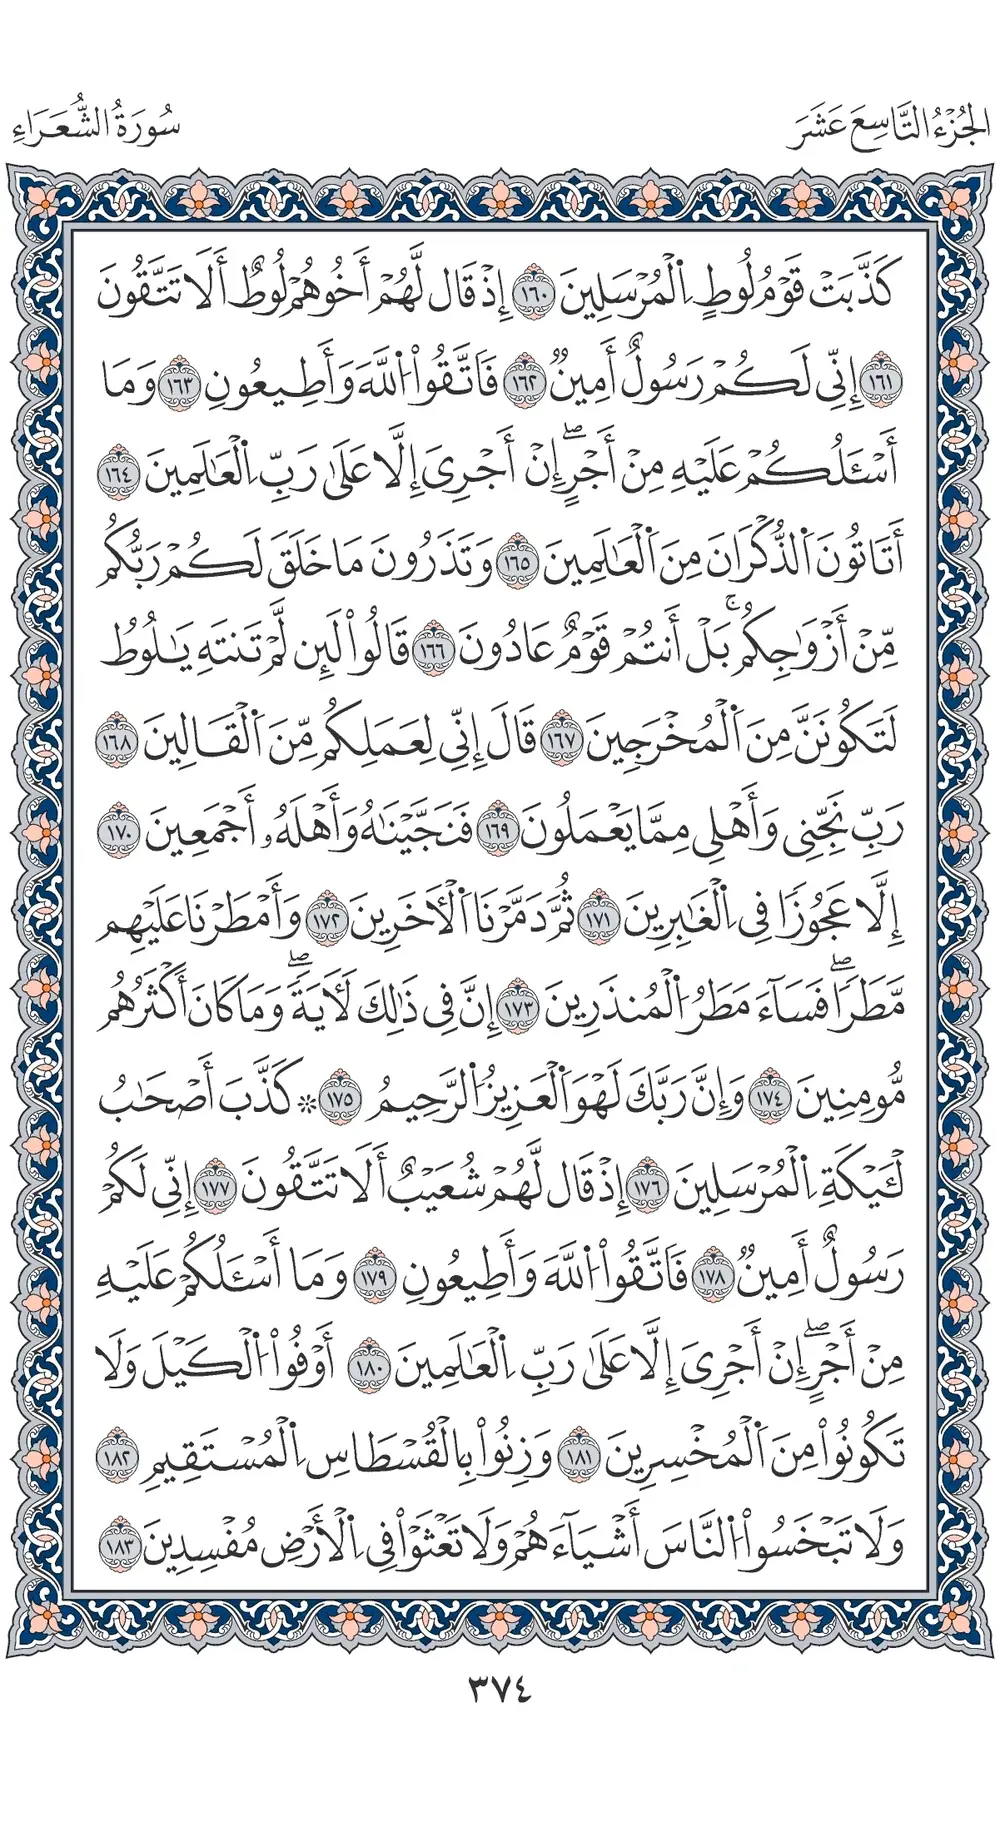 الجُزْءُ التَّاسِعَ عَشَرَ
سُورَةُ الشُّعَرَاءِ
كَذَّبَتْ قَوْمُ لُوطٍ اِ۬لْمُرْسَلِينَ ١٦٠ إِذْ قَال لَّهُمْ أَخُوهُمْ لُوطٌ أَلَا تَتَّقُونَ
١٦١ إِنِّي لَكُمْ رَسُولٌ أَمِينٞ ١٦٢ فَاتَّقُواْ اُ۬للَّهَ وَأَطِيعُونِ ١٦٣ وَمَا
أَسْـَٔلُكُمْ عَلَيْهِ مِنْ أَجْرٍۖ إِنْ أَجْرِيَ إِلَّا عَلَىٰ رَبِّ اِ۬لْعَٰلَمِينَ ١٦٤
أَتَاتُونَ اَ۬لذُّكْرَانَ مِنَ اَ۬لْعَٰلَمِينَ ١٦٥ وَتَذَرُونَ مَا خَلَقَ لَكُمْ رَبُّكُم
مِّنْ أَزْوَٰجِكُمۚ بَلْ أَنتُمْ قَوْمٌ عَادُونَ ١٦٦ قَالُواْ لَئِن لَّمْ تَنتَهِ يَٰلُوطُ
لَتَكُونَنَّ مِنَ اَ۬لْمُخْرَجِينَ ١٦٧ قَالَ إِنِّي لِعَمَلِكُم مِّنَ اَ۬لْقَالِينَ ١٦٨
رَبِّ نَجِّنِي وَأَهْلِي مِمَّا يَعْمَلُونَ ١٦٩ فَنَجَّيْنَٰهُ وَأَهْلَهُۥ أَجْمَعِينَ ١٧٠
إِلَّا عَجُوزٗا فِي اِ۬لْغَٰبِرِينَ ١٧١ ثُمَّ دَمَّرْنَا اَ۬لْأٓخَرِينَ ١٧٢ وَأَمْطَرْنَا عَلَيْهِم
مَّطَرٗاۖ فَسَآءَ مَطَرُ اُ۬لْمُنذَرِينَ ١٧٣ إِنَّ فِي ذَٰلِكَ لَأٓيَةٗۖ وَمَا كَانَ أَكْثَرُهُم
مُّومِنِينَ ١٧٤ وَإِنَّ رَبَّكَ لَهْوَ اَ۬لْعَزِيزُ اُ۬لرَّحِيمُ ١٧٥ ۞ كَذَّبَ أَصْحَٰبُ
لْـَٔيْكَةِ اِ۬لْمُرْسَلِينَ ١٧٦ إِذْ قَال لَّهُمْ شُعَيْبٌ أَلَا تَتَّقُونَ ١٧٧ إِنِّي لَكُمْ
رَسُولٌ أَمِينٞ ١٧٨ فَاتَّقُواْ اُ۬للَّهَ وَأَطِيعُونِ ١٧٩ وَمَا أَسْـَٔلُكُمْ عَلَيْهِ
مِنْ أَجْرٍۖ إِنْ أَجْرِيَ إِلَّا عَلَىٰ رَبِّ اِ۬لْعَٰلَمِينَ ١٨٠ أَوْفُواْ اُ۬لْكَيْلَ وَلَا
تَكُونُواْ مِنَ اَ۬لْمُخْسِرِينَ ١٨١ وَزِنُواْ بِالْقُسْطَاسِ اِ۬لْمُسْتَقِيمِ ١٨٢
وَلَا تَبْخَسُواْ اُ۬لنَّاسَ أَشْيَآءَهُمْ وَلَا تَعْثَوْاْ فِي اِ۬لْأَرْضِ مُفْسِدِينَ ١٨٣
٣٧٤